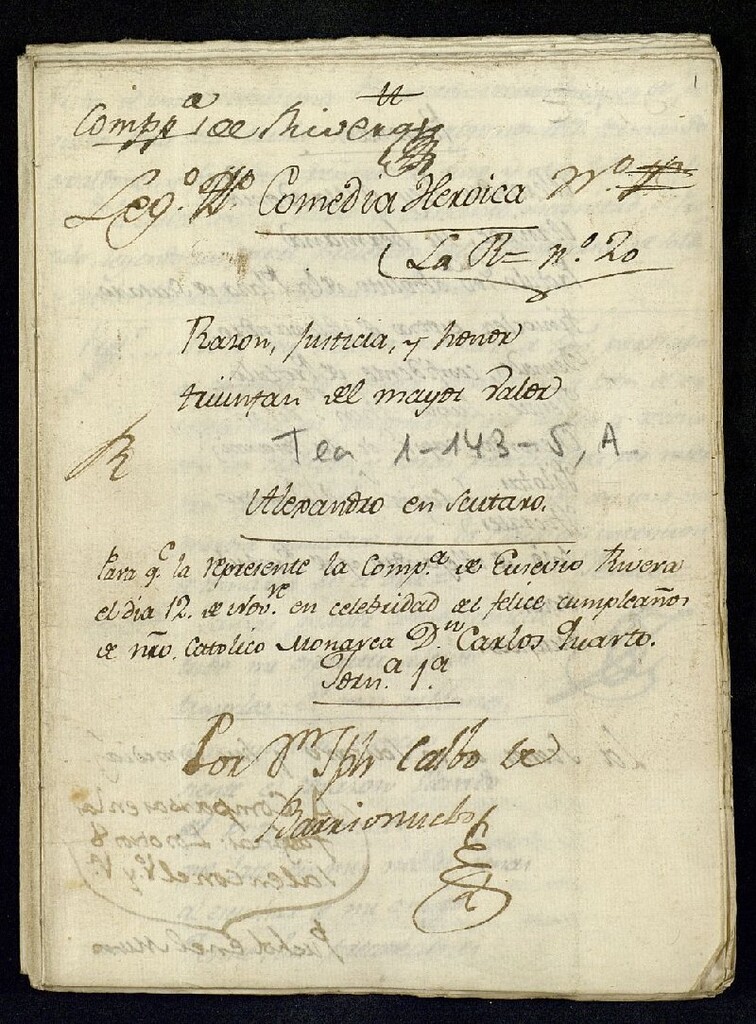 1
Compp.ª de Rivera
Leg.º Comedia Heroica N.º
La R= n.º 20
Razon, Justicia, y honor
triunfan del mayor Valor
Tea 1-143-5, A
R
Alexandro en Scutaro.
Para q.e la represente la Comp.ª de Eusevio Rivera
el dia 12. de Nov.re en celebridad del felice cumpleaños
de nro. Catolico Monarca D.n Carlos Quarto.
Jorn.ª 1.ª
Por Dn Jph Calbo de
Barrionuebo